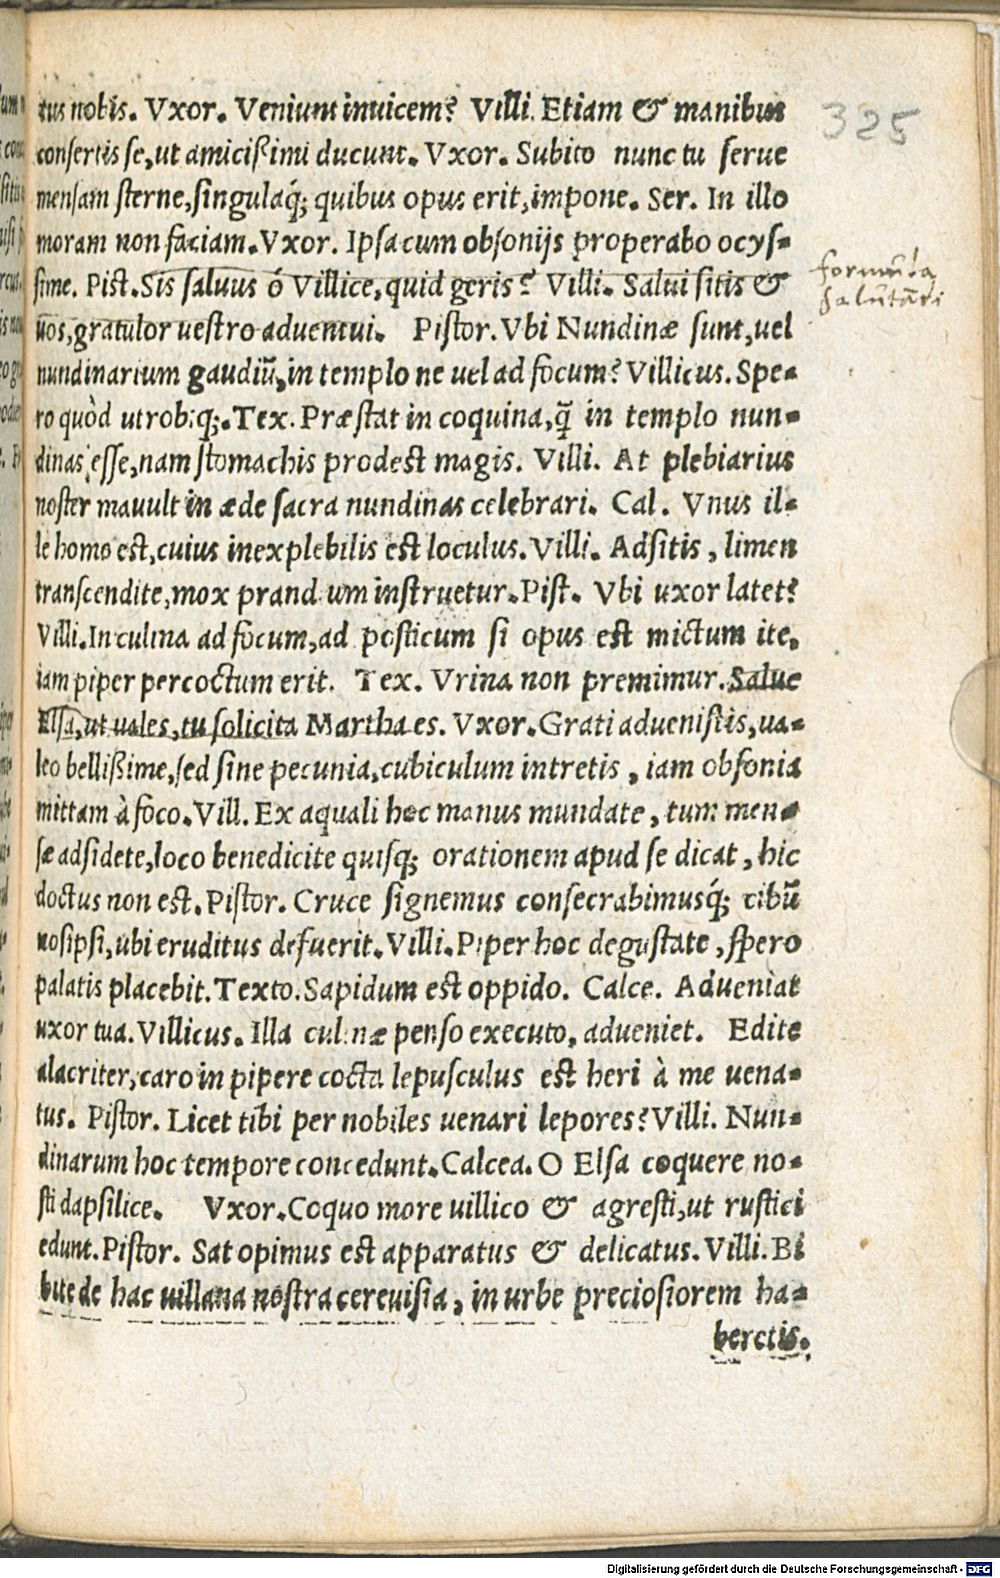 tus nobis. Vxor. Veniunt inuicem? Villi. Etiam & manibus
consertis se, ut amicißimi ducunt. Vxor. Subito nunc tu serue
mensam sterne, singulaq́; quibus opus erit, impone. Ser. In illo
moram non faciam. Vxor. Ipsa cum obsonijs properabo ocys-
sime. Pist. Sis saluus ó Villice, quid geris? Villi. Salui sitis &
uos, gratulor uestro aduentui. Pistor. Vbi Nundinæ sunt, uel
nundinarium gaudiũ, in templo ne uel ad focum? Villicus. Spe-
ro quòd utrobiq;. Tex. Præstat in coquina, q̃ in templo nun-
dinas esse, nam stomachis prodest magis. Villi. At plebiarius
noster mauult in æde sacra nundinas celebrari. Cal. Vnus il-
le homo est, cuius inexplebilis est loculus. Villi. Adsitis, limen
transcendite, mox prandium instruetur. Pist. Vbi uxor latet?
Villi. In culina ad focum, ad posticum si opus est mictum ite,
iam piper percoctum erit. Tex. Vrina non premimur. Salue
Elsa, ut uales, tu solicita Martha es. Vxor. Grati aduenistis, ua-
leo bellißime, sed sine pecunia, cubiculum intretis, iam obsonia
mittam à foco. Vill. Ex aquali hoc manus mundate, tum men-
sæ adsidete, loco benedicite quisq; orationem apud se dicat, hic
doctus non est. Pistor. Cruce signemus consecrabimusq́; cibũ
nosipsi, ubi eruditus defuerit. Villi. Piper hoc degustate, spero
palatis placebit. Texto. Sapidum est oppido. Calce. Adueniat
uxor tua. Villicus. Illa culinæ penso executo, adueniet. Edite
alacriter, caro in pipere cocta lepusculus est heri à me uena-
tus. Pistor. Licet tibi per nobiles uenari lepores? Villi. Nun-
dinarum hoc tempore concedunt. Calcea. O Elsa coquere no-
sti dapsilice. Vxor. Coquo more uillico & agresti, ut rustici
edunt. Pistor. Sat opimus est apparatus & delicatus. Villi. Bi
bite de hac uillana nostra cereuisia, in urbe preciosiorem ha-
beretis.
325
formula
salutandi
Digitalisierung gefördert durch die Deutsche Forschungsgemeinschaft - DFG